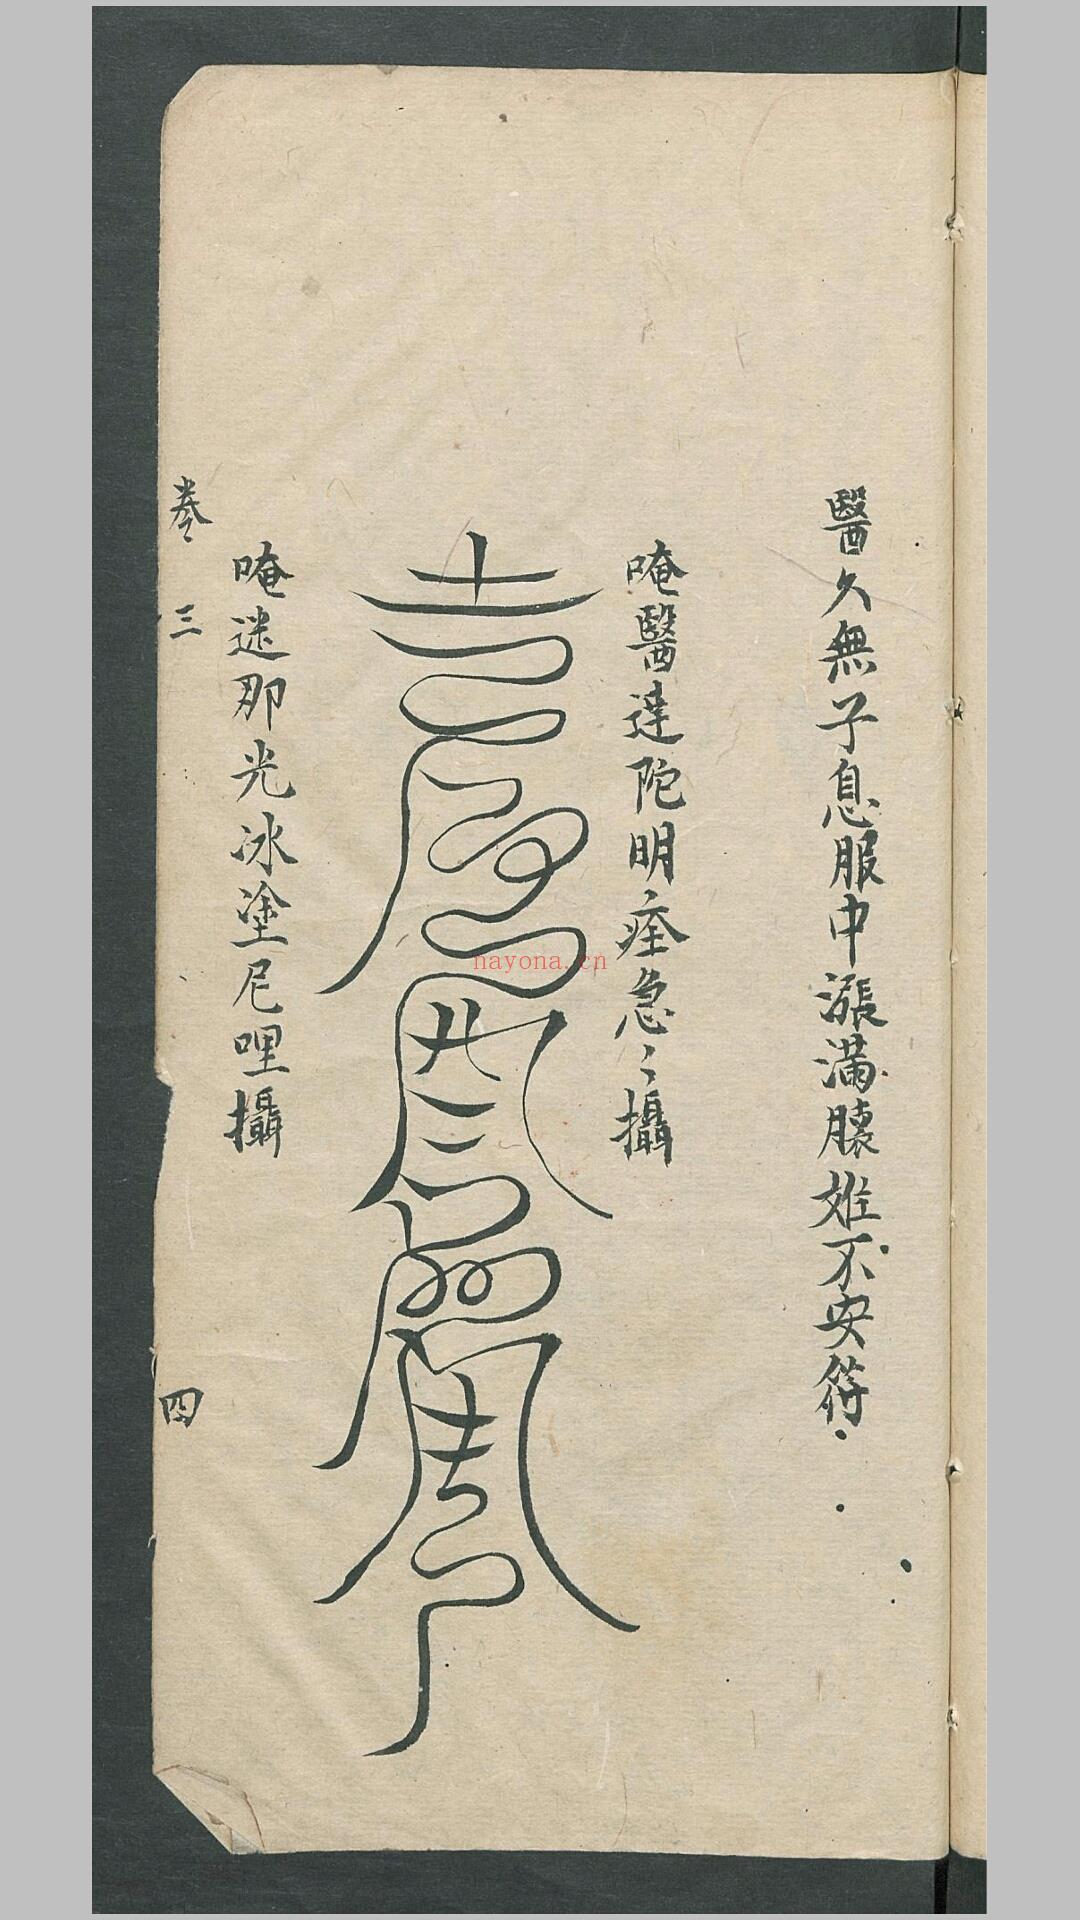 醫久無子息服中漲滿膿姙不安符
唵醫達陀明痊急〻攝
唵迷那光冰塗尼哩攝
卷三
四
nayona.cn